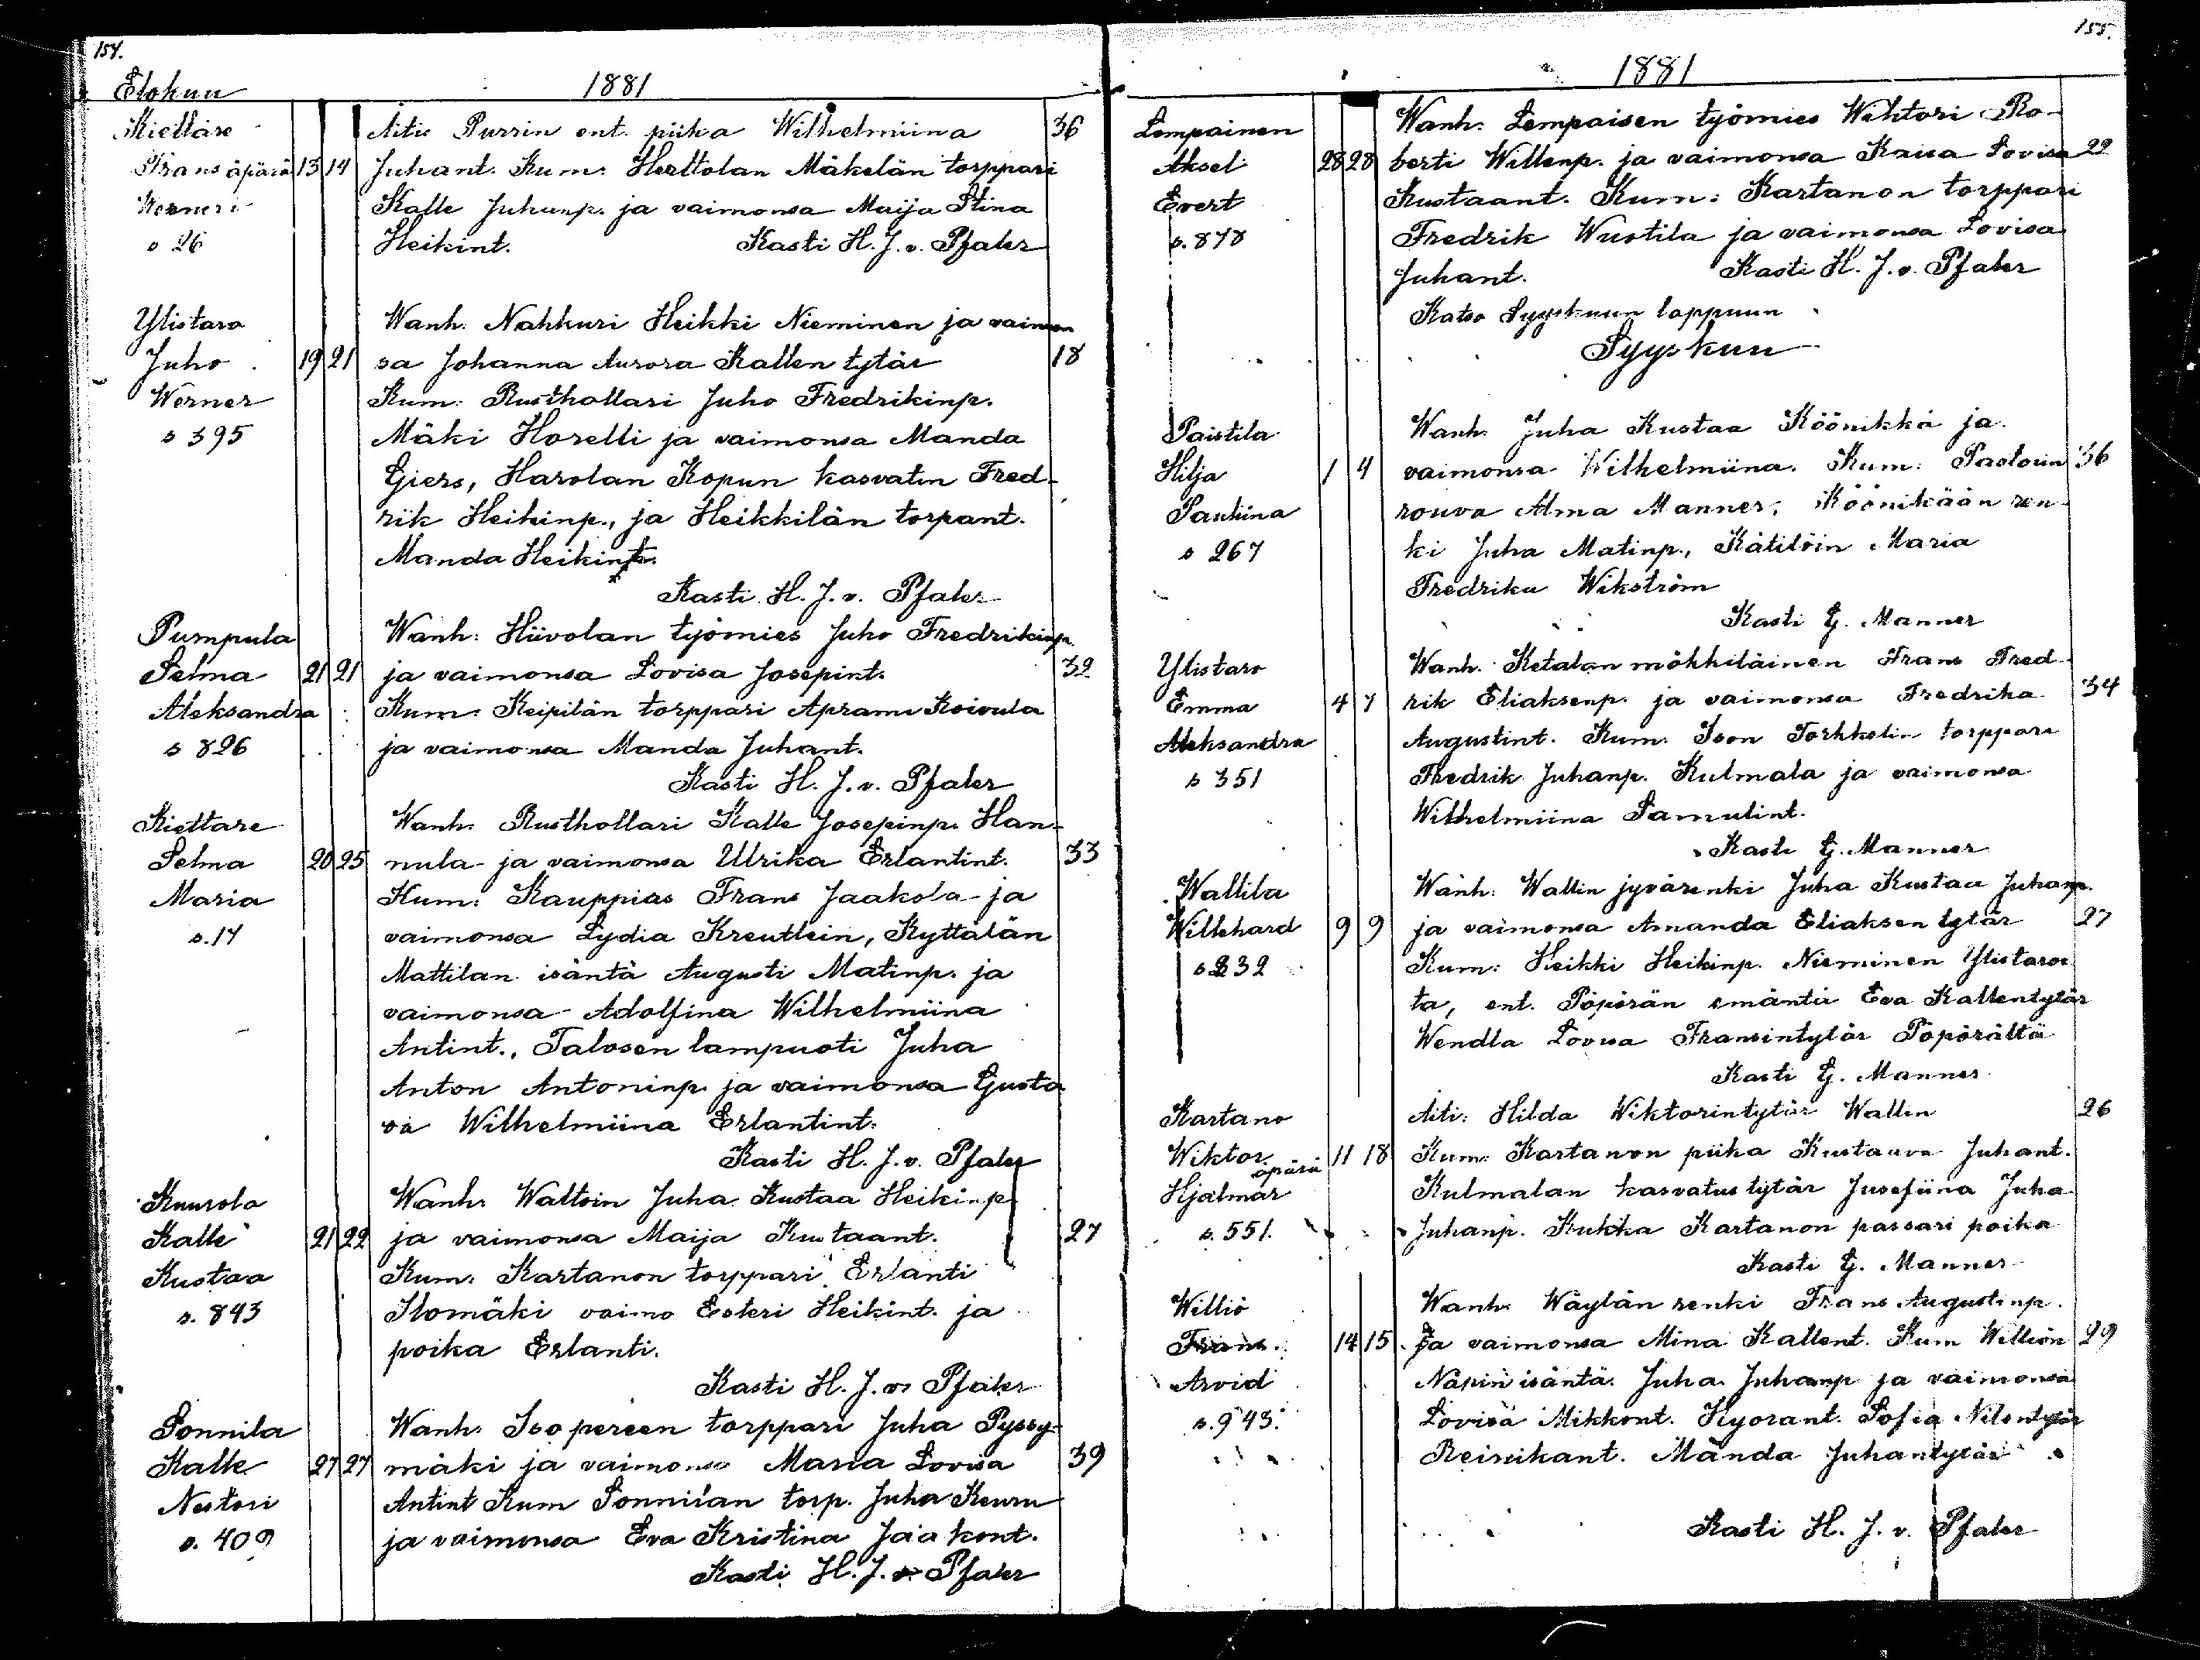 154.
Elokuu 1881
Kiettare Äiti: Purrin ent. piika Wilhelmiina 36
Frans äpärä 13 14 Juhant. Kum: Herttolan Mäkelän torppari
Werneri Kalle Juhanp. ja vaimonsa Maija Stina
s 26 Heikint. Kasti H. J. v. Pfaler
Ylistaro Wanh: Nahkuri Heikki Nieminen ja vaimon
Juho 19 21 sa Johanna Aurora Kallen tytär 18
Werner Kum: Rusthollari Juho Fredrikinp.
s 395 Mäki Horelli ja vaimonsa Manda
Giers, Harolan Kopun kasvatin Fred-
rik Heikinp., ja Heikkilän torpant.
Manda Heikint.
Kasti H. J. v. Pfaler
Pumpula Wanh: Hiivolan työmies Juho Fredrikinp.
Selma 21 21 ja vaimonsa Lovisa Josepint. 32
Aleksandra Kum: Keipilän torppari Aprami Koivula
s 826 ja vaimonsa Manda Juhant.
Kasti H. J. v. Pfaler
Kiettare Wanh: Rusthollari Kalle Josepinp. Han-
Selma 20 25 nula ja vaimonsa Ulrika Erlantint. 33
Maria Kum: Kauppias Frans Jaakola ja
s. 14 vaimonsa Lydia Kreutlein, Kyttälän
Mattilan isäntä Augusti Matinp. ja
vaimonsa Adolfina Wilhelmiina
Antint., Talosen lampuoti Juha
Anton Antoninp. ja vaimonsa Gusta
va Wilhelmiina Erlantint.
Kasti H. J. v. Pfaler
Kuurola Wanh: Waltoin Juha Kustaa Heikinp.
Kalle 21 22 ja vaimonsa Maija Kustaant. 27
Kustaa Kum: Kartanon torppari Erlanti
s. 843 Ilomäki vaimo Esteri Heikint. ja
poika Erlanti.
Kasti H. J. v. Pfaler
Sonnila Wanh: Isopereen torppari Juha Pyssy-
Kalle 27 27 mäki ja vaimonsa Maria Lovisa 39
Nestori Antint Kum Sonnilan torp. Juha Keuru
s. 409 ja vaimonsa Eva Kristina Jaakont.
Kasti H. J. v. Pfaler
155.
1881
Lempainen Wanh: Lempaisen työmies Wihtori Ro-
Aksel 28 28 berti Willenp. ja vaimonsa Kaisa Lovisa 22
Evert Kustaant. Kum: Kartanon torppari
s. 878 Fredrik Wustila ja vaimonsa Lovisa
Juhant. Kasti H. J. v. Pfaler
Katso Syyskuun loppuun
Syyskuu
Paistila Wanh: Juha Kustaa Köönikkä ja
Hilja 1 4 vaimonsa Wilhelmiina. Kum: Pastorin 36
Pauliina rouva Alma Manner, Köönikään ren-
s 267 ki Juha Matinp., Kätilöin Maria
Fredrika Wikström
Kasti G. Manner
Ylistaro Wanh. Ketalan mökkiläinen Frans Fred-
Emma 4 7 rik Eliaksenp. ja vaimonsa Fredrika 34
Aleksandra Augustint. Kum: Ison Torkkelin torppari
s 351 Fredrik Juhanp. Kulmala ja vaimonsa
Wilhelmiina Samulint.
Kasti G. Manner
Wallila Wanh: Wallin jyvärenki Juha Kustaa Juhanp.
Willehard 9 9 ja vaimonsa Amanda Eliaksen tytär 27
s 832 Kum: Heikki Heikinp. Nieminen Ylistaros
ta, ent. Pöpörän emäntä Eva Kallentytär
Wendla Lovisa Fransintytär Pöpörältä
Kasti G. Manner
Kartano Äiti: Hilda Wiktorintytär Wallin 26
Wiktor 11 18 Kum: Kartanon piika Kustaava Juhant.
äpärä
Hjalmar Kulmalan kasvatustytär Josefiina Juha
s. 551. Juhanp. Kukka Kartanon passari poika
Kasti G. Manner
Williö Wanh: Wäylän renki Frans Augustinp.
Frans 14 15 ja vaimonsa Mina Kallent. Kum Williön 29
Arvid Näpin isäntä Juha Juhanp ja vaimonsa
s. 943. Lovisa Mikkont. Sofia
Manda Juhantytär
Kasti H. J. v. Pfaler